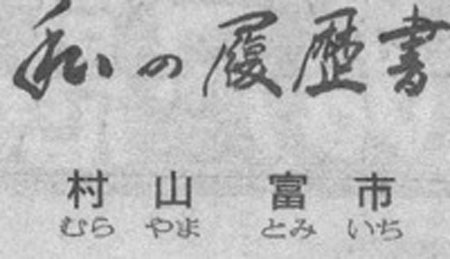 私の履歴書
村山 富市
むら やま とみ いち